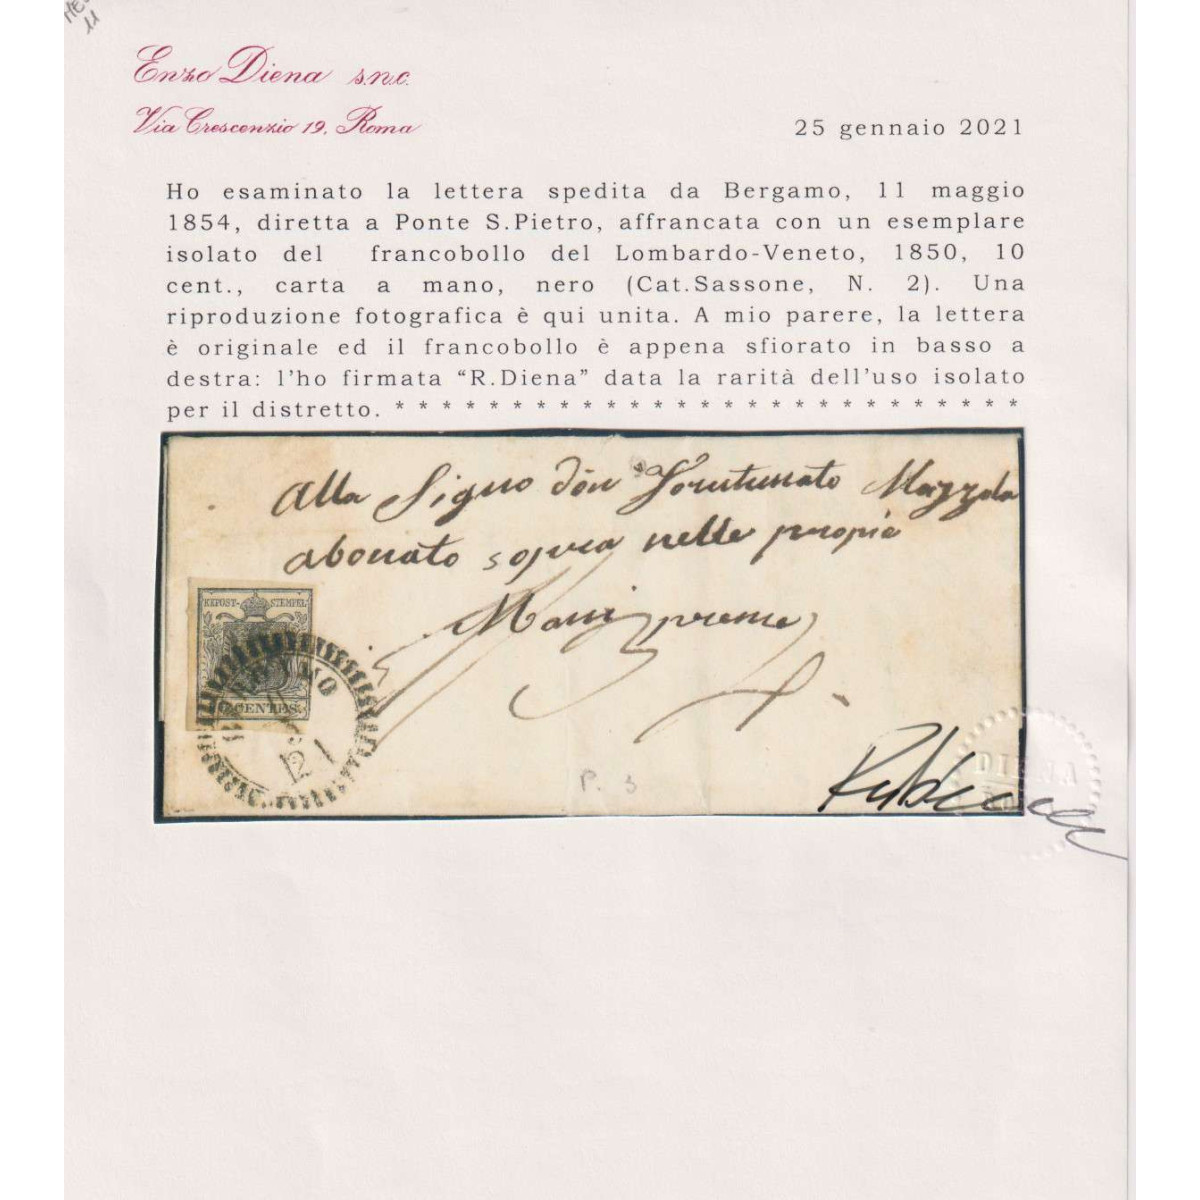 11
Enzo Diena s.n.c.
Via Crescenzio 19, Roma
25 gennaio 2021
Ho esaminato la lettera spedita da Bergamo, 11 maggio
1854, diretta a Ponte S.Pietro, affrancata con un esemplare
isolato del francobollo del Lombardo-Veneto, 1850, 10
cent., carta a mano, nero (Cat.Sassone, N. 2). Una
riproduzione fotografica è qui unita. A mio parere, la lettera
è originale ed il francobollo è appena sfiorato in basso a
destra: l'ho firmata “R.Diena” data la rarità dell'uso isolato
per il distretto. * * * * * * * * * * * * * * * * * * * * * * * * * * *
Alla Signo don Fortunato Mazzola
abonato sopra nelle propie
KKPOST-STEMPEL
CENTES.
P. 3
DIENA